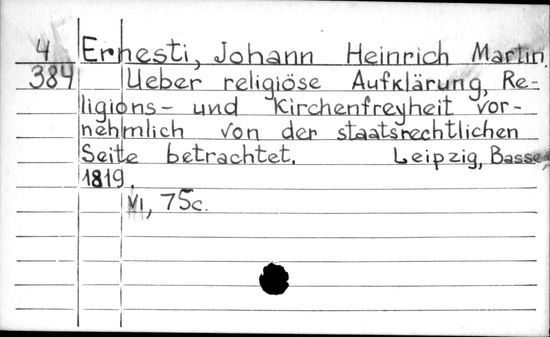 4 Ernesti, Johann Heinrich Martin.
384 Ueber religiöse Aufklärung, Re-
ligions- und Kirchenfreyheit vor-
nehmlich von der staatsrechtlichen
Seite betrachtet. Leipzig, Basse,
1819.
VI, 75c.